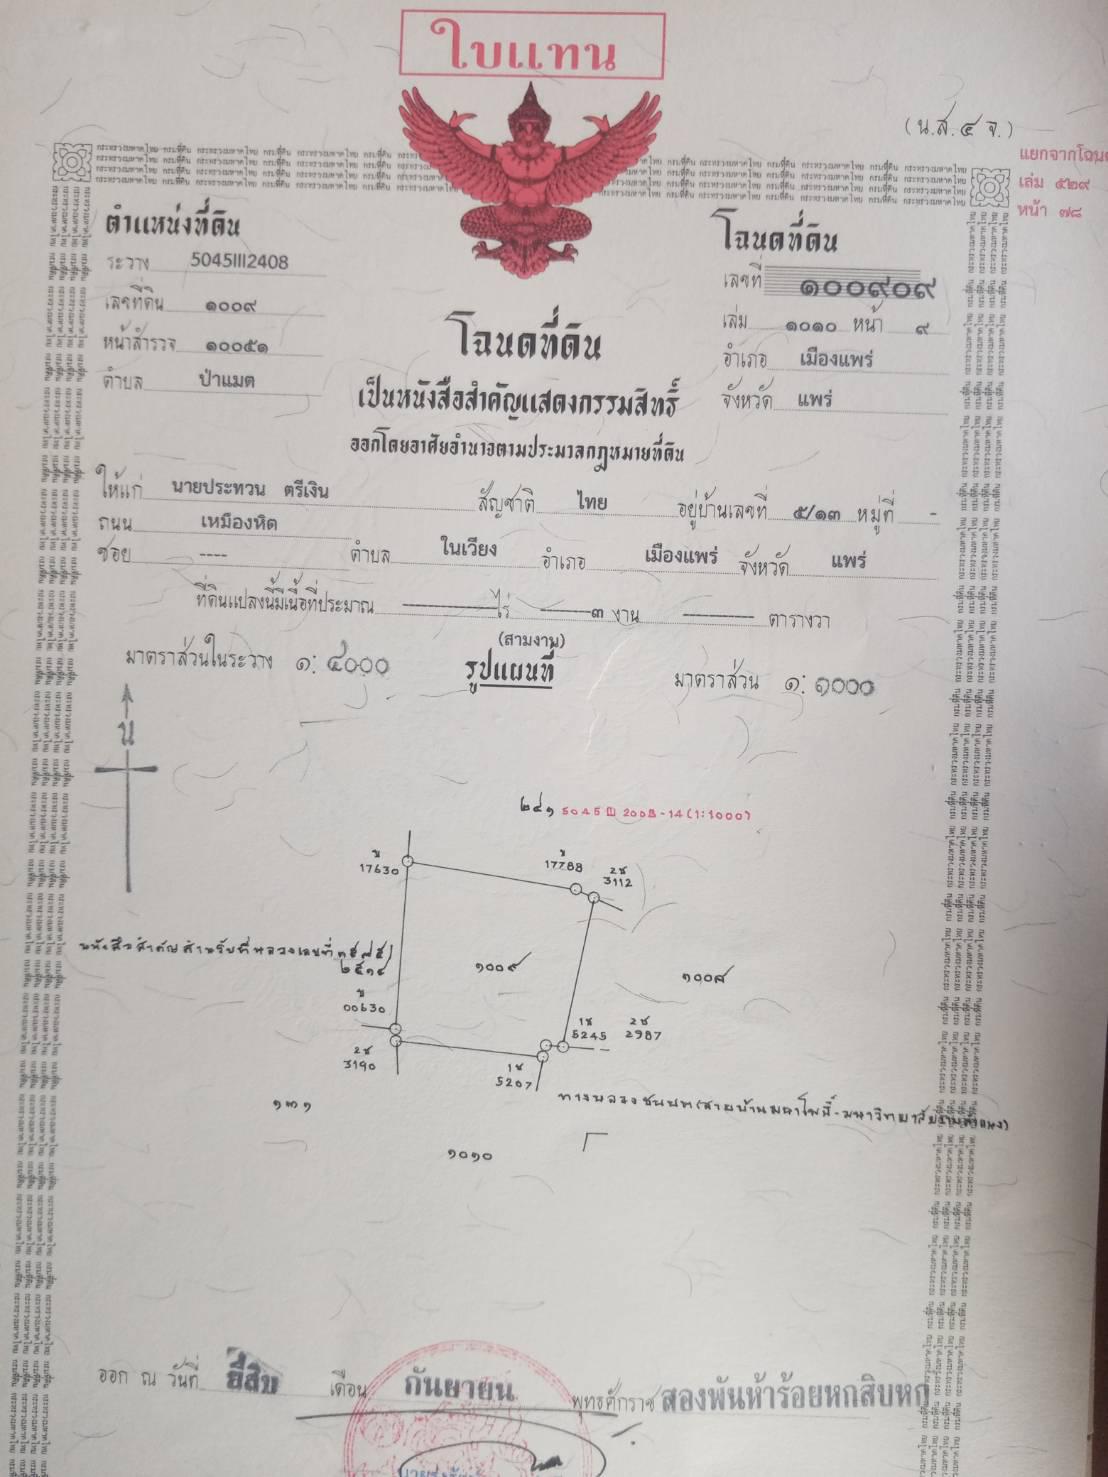 ใบแทน
(น.ส. ๔ จ.)
แยกจากโฉนด
เล่ม ๕๒๙
หน้า ๗๘
ตำแหน่งที่ดิน
ระวาง 5045III2408
เลขที่ดิน ๑๐๐๙
หน้าสำรวจ ๑๐๐๕๑
ตำบล ป่าแมต
โฉนดที่ดิน
เลขที่ ๑๐๐๙๐๙
เล่ม ๑๐๑๐ หน้า ๙
อำเภอ เมืองแพร่
จังหวัด แพร่
โฉนดที่ดิน
เป็นหนังสือสำคัญแสดงกรรมสิทธิ์
ออกโดยอาศัยอำนาจตามประมวลกฎหมายที่ดิน
ให้แก่ นายประทวน ตรีเงิน สัญชาติ ไทย อยู่บ้านเลขที่ ๕/๑๓ หมู่ที่ -
ถนน เหมืองหิต
ซอย ---- ตำบล ในเวียง อำเภอ เมืองแพร่ จังหวัด แพร่
ที่ดินแปลงนี้มีเนื้อที่ประมาณ ไร่ ๓ งาน ตารางวา
(สามงาน)
มาตราส่วนในระวาง ๑: ๔๐๐๐ รูปแผนที่ มาตราส่วน ๑: ๑๐๐๐
น
๒๔๑
17630
17788
2ช
3112
หนังสือสำคัญสำหรับที่หลวงเลขที่
๑๐๐๙
๑๐๐๘
00630
1ช
5245
2ช
2987
2ช
3190
1ช
5207
๑๓๑
๑๐๑๐
ออก ณ วันที่ ยี่สิบ เดือน กันยายน พุทธศักราช สองพันห้าร้อยหกสิบหก